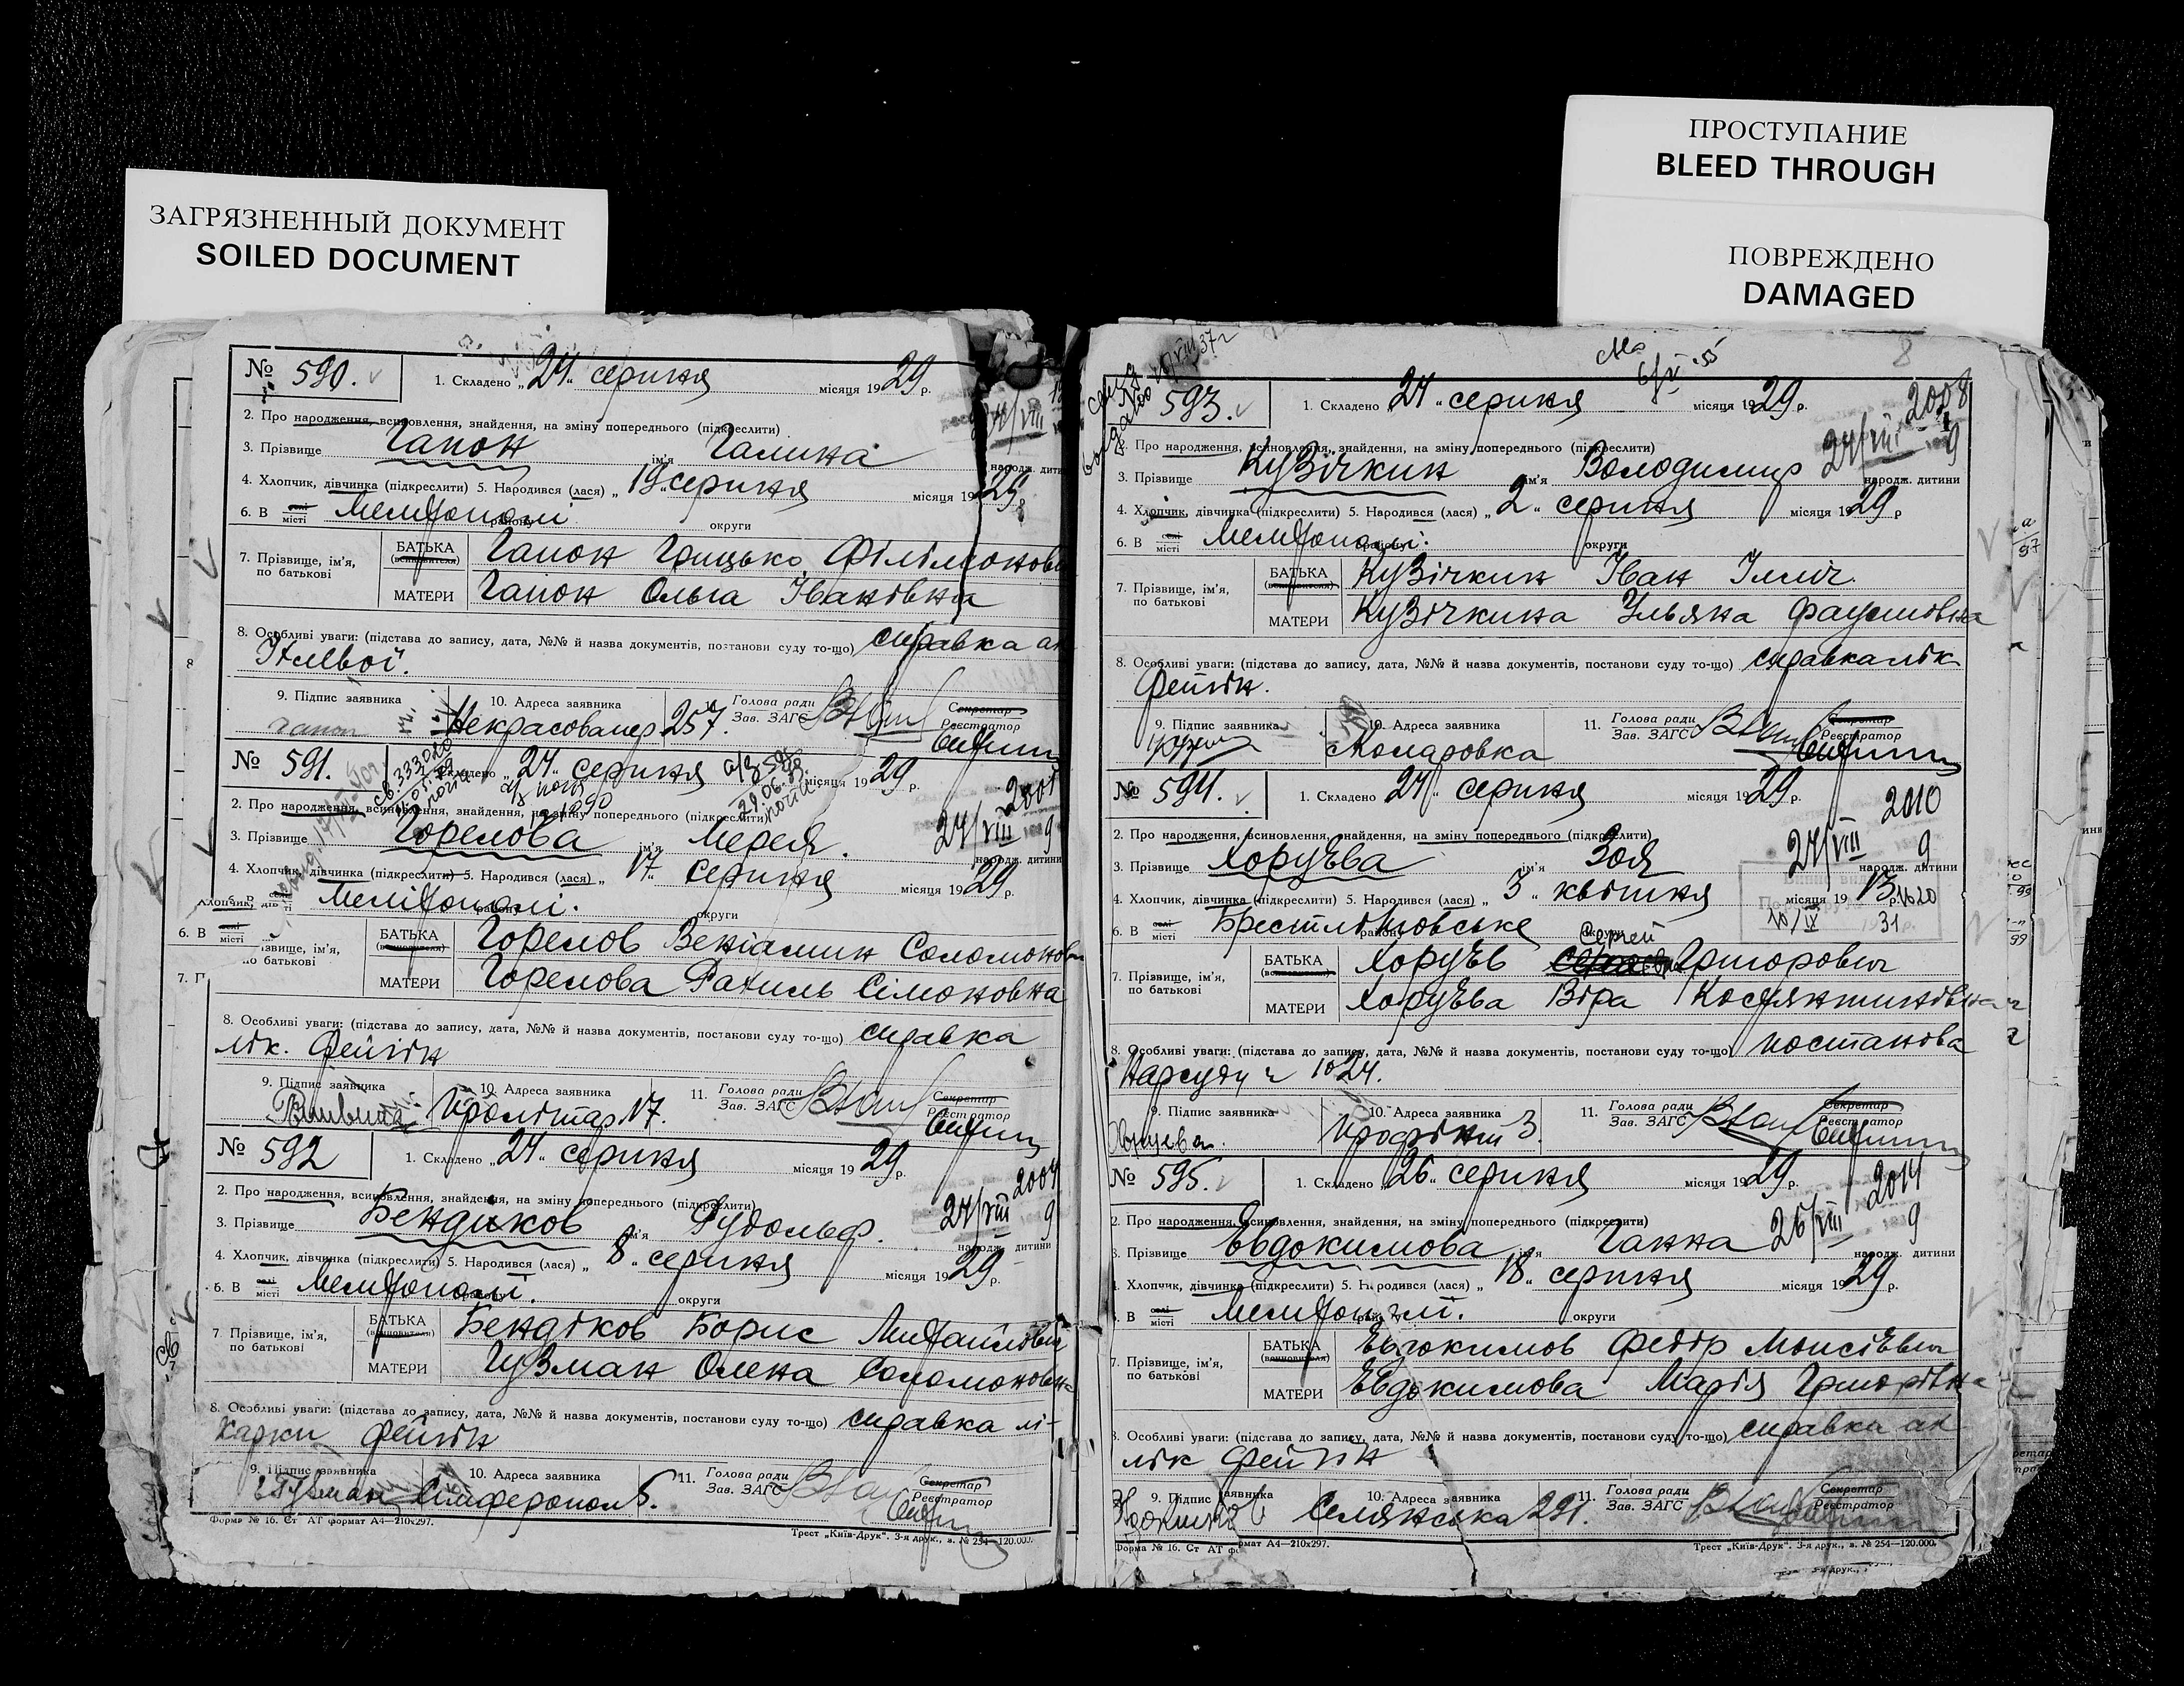 ЗАГРЯЗНЕННЫЙ ДОКУМЕНТ
SOILED DOCUMENT
ПРОСТУПАНИЕ
BLEED THROUGH
ПОВРЕЖДЕНО
DAMAGED
№ 590. 1. Складено „24“ серпня місяця 1929 р.
2. Про народження, всиновлення, знайдення, на зміну попереднього (підкреслити)
3. Прізвище Гапон ім'я Галина народж. дити
4. Хлопчик, дівчинка (підкреслити) 5. Народився (лася) „19“ серпня місяця 1929 р.
6. В селі місті Мелітополі району округи
7. Прізвище, ім'я, по батькові БАТЬКА (всиновителя) Гапон Грицько Філімонов
МАТЕРИ Гапон Ольга Іванівна
8. Особливі уваги: (підстава до запису, дата, №№ й назва документів, постанови суду то-що) справка ак
9. Підпис заявника гапон 10. Адреса заявника Некрасова 257. Голова ради Зав. ЗАГС Секретар Реєстратор
№ 591. Складено „24“ серпня місяця 1929 р.
2. Про народження, всиновлення, знайдення, на зміну попереднього (підкреслити)
24/VIII 9
3. Прізвище Горелова ім'я народж. дитини
4. Хлопчик, дівчинка (підкреслити) 5. Народився (лася) „17“ серпня місяця 1929 р.
6. В місті Мелітополі. району округи
БАТЬКА (всиновителя) Горелов Веніамин Соломонов
МАТЕРИ Горелова Рахиль Сімоновна
8. Особливі уваги: (підстава до запису, дата, №№ й назва документів, постанови суду то-що) справка
лік. Фейгін
9. Підпис заявника 10. Адреса заявника Пролітар 17. 11. Голова ради Зав. ЗАГС Секретар Реєстратор
№ 592 1. Складено „24“ серпня місяця 1929 р.
2. Про народження, всиновлення, знайдення, на зміну попереднього (підкреслити)
24/VIII 9
3. Прізвище Бендиков ім'я Рудольф. народж. дитини
4. Хлопчик, дівчинка (підкреслити) 5. Народився (лася) „8“ серпня місяця 1929 р.
6. В селі місті Мелітополі. району округи
7. Прізвище, ім'я, по батькові БАТЬКА (всиновителя) Бендіков Борис Михайлович
МАТЕРИ Гузман Олена Соломоновна
8. Особливі уваги: (підстава до запису, дата, №№ й назва документів, постанови суду то-що) справка лі-
карки Фейгін
9. Підпис заявника Гузман 10. Адреса заявника Сімферопол 6. 11. Голова ради Зав. ЗАГС Секретар Реєстратор
Форма № 16. Ст АТ формат А4—210х297. Трест „Київ-Друк“. 3-я друк., в. № 254—120.000.
8
№ 593. 1. Складено „24“ серпня місяця 1929 р.
2008
2. Про народження, всиновлення, знайдення, на зміну попереднього (підкреслити)
24/VIII 9
3. Прізвище Кузічкин ім'я Володимир народж. дитини
4. Хлопчик, дівчинка (підкреслити) 5. Народився (лася) „2“ серпня місяця 1929 р
6. В селі місті Мелітополі. району округи
7. Прізвище, ім'я, по батькові БАТЬКА (всиновителя) Кузічкин Іван Ілліч.
МАТЕРИ Кузічкина Ульяна Фаустовна
8. Особливі уваги: (підстава до запису, дата, №№ й назва документів, постанови суду то-що) справка лік
Фейгін.
9. Підпис заявника 10. Адреса заявника 11. Голова ради Зав. ЗАГС Секретар Реєстратор
№ 594. 1. Складено „24“ серпня місяця 1929 р.
2010
2. Про народження, всиновлення, знайдення, на зміну попереднього (підкреслити)
24/VIII 9
3. Прізвище Хоруєва ім'я Зоя народж. дитини
4. Хлопчик, дівчинка (підкреслити) 5. Народився (лася) „3“ квітня місяця 1913 р.
6. В селі місті Брестлітовське району округи
10/IX 31
Сергей
7. Прізвище, ім'я, по батькові БАТЬКА (всиновителя) Хоруєв Григорович
МАТЕРИ Хоруєва Віра Костянтинівна
8. Особливі уваги: (підстава до запису, дата, №№ й назва документів, постанови суду то-що) постанова
Нарсуду
9. Підпис заявника 10. Адреса заявника Профінт 3. 11. Голова ради Зав. ЗАГС Секретар Реєстратор
№ 595. 1. Складено „26“ серпня місяця 1929 р.
2014
2. Про народження, всиновлення, знайдення, на зміну попереднього (підкреслити)
26/VIII 9
3. Прізвище Евдокимова ім'я Ганна народж. дитини
4. Хлопчик, дівчинка (підкреслити) 5. Народився (лася) „18“ серпня місяця 1929 р.
В селі місті Мелітополі. округи
7. Прізвище, ім'я, по батькові БАТЬКА (всиновителя) Евдокимов Федір Моисієвич
МАТЕРИ Евдокимова Марія Григорівна
8. Особливі уваги: (підстава до запису, дата, №№ й назва документів, постанови суду то-що) справка ак
лік Фейгін
9. Підпис заявника 10. Адреса заявника Селянська 291. 11. Голова ради Зав. ЗАГС Секретар Реєстратор
Форма № 16. Ст АТ формат А4—210х297. Трест „Київ-Друк“. 3-я друк., в. № 254—120.000.